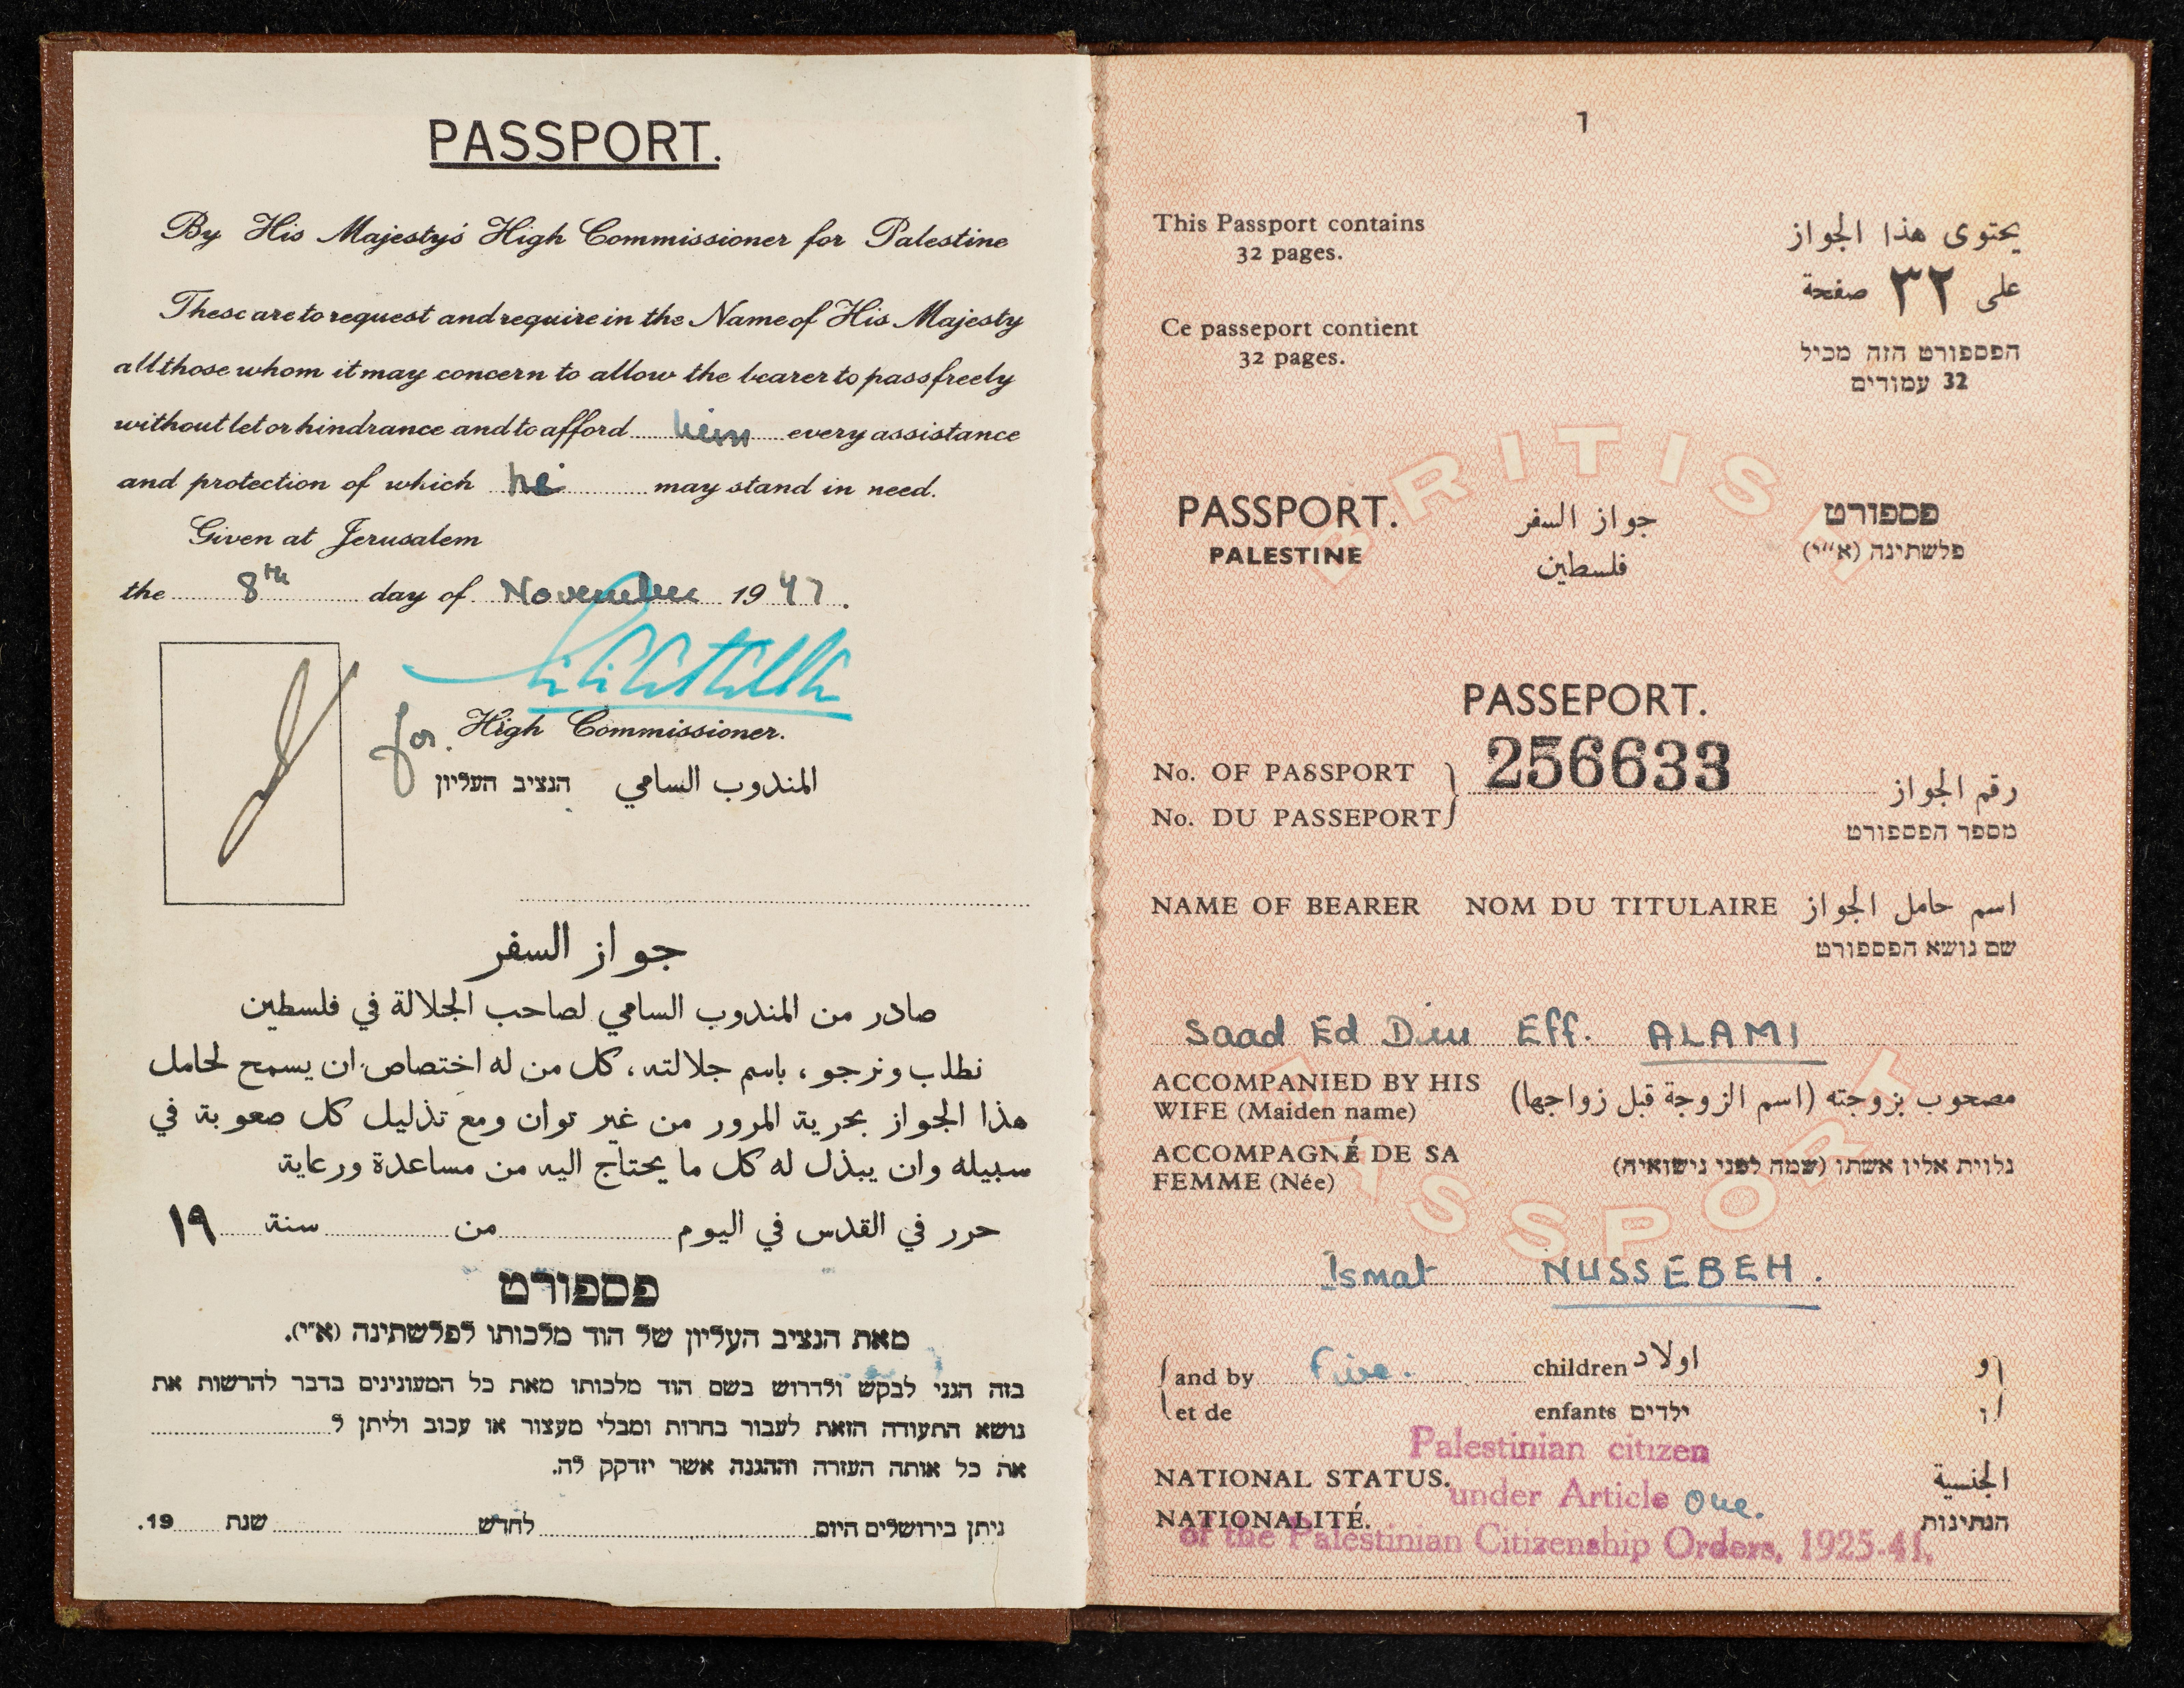 PASSPORT.
By His Majesty's High Commissioner for Palestine
These are to request and require in the Name of His Majesty
all those whom it may concern to allow the bearer to pass freely
without let or hindrance and to afford him every assistance
and protection of which he may stand in need.
Given at Jerusalem
the 8th day of November 1947.
for High Commissioner.
المندوب السامي הנציב העליון
جواز السفر
صادر من المندوب السامي لصاحب الجلالة في فلسطين
نطلب ونرجو ، باسم جلالته ، كل من له اختصاص ان يسمح لحامل
هذا الجواز بحرية المرور من غير توان ومع تذليل كل صعوبة في
سبيله وان يبذل له كل ما يحتاج اليه من مساعدة ورعاية
حرر في القدس في اليوم من سنة ١٩
פספורט
מאת הנציב העליון של הוד מלכותו לפלשתינה (א״י).
בזה הנני לבקש ולדרוש בשם הוד מלכותו מאת כל המעונינים בדבר להרשות את
נושא התעודה הזאת לעבור בחרות ומבלי מעצור או עכוב וליתן ל
את כל אותה העזרה וההגנה אשר יזדקק לה.
ניתן בירושלים היום לחדש שנת 19.
1
This Passport contains
32 pages.
يحتوى هذا الجواز
على ٣٢ صفحة
Ce passeport contient
32 pages.
הפספורט הזה מכיל
32 עמודים
BRITISH
PASSPORT. جواز السفر פספורט
PALESTINE فلسطين פלשתינה (א״י)
PASSEPORT.
No. OF PASSPORT 256633 رقم الجواز
No. DU PASSEPORT מספר הפספורט
NAME OF BEARER NOM DU TITULAIRE اسم حامل الجواز
שם נושא הפספורט
Saad Ed Din Eff. ALAMI
ACCOMPANIED BY HIS
WIFE (Maiden name) مصحوب بزوجته (اسم الزوجة قبل زواجها)
ACCOMPAGNÉ DE SA
FEMME (Née) נלוית אליו אשתו (שמה לפני נישואיה)
PASSPORT
Ismat NUSSEBEH.
and by five. children اولاد و
et de enfants ילדים ו
Palestinian citizen
NATIONAL STATUS. الجنسية
under Article one.
NATIONALITÉ. הנתינות
of the Palestinian Citizenship Orders, 1925-41.